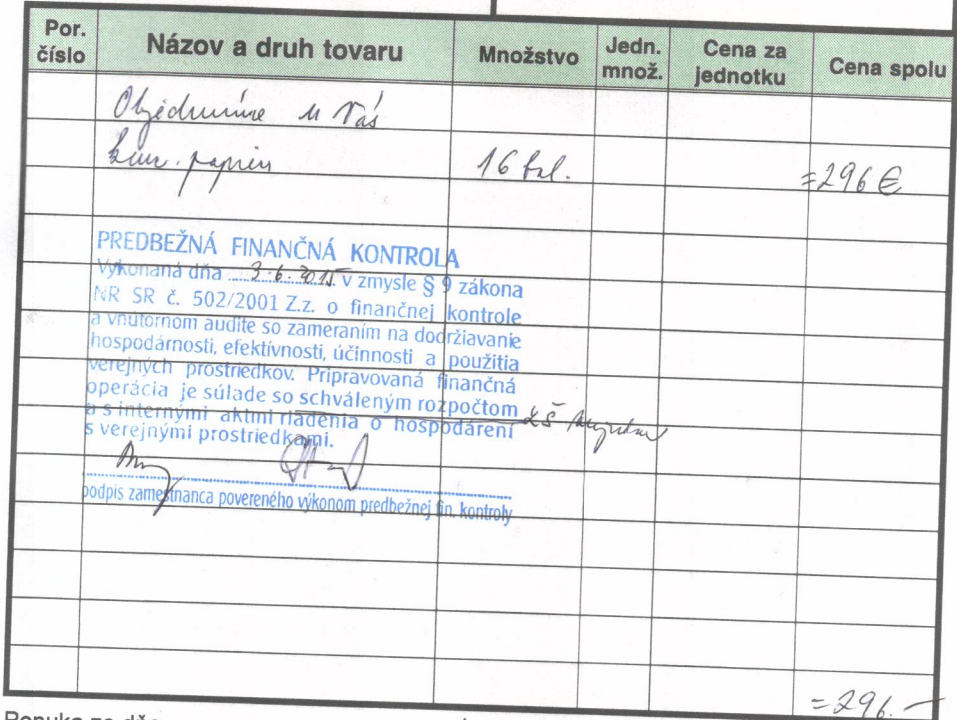 Por. číslo Názov a druh tovaru Množstvo Jedn. množ. Cena za jednotku Cena spolu
Objednávame u Vás
papier 16 bal. =296 €
PREDBEŽNÁ FINANČNÁ KONTROLA
Vykonaná dňa 3.6.2015 v zmysle § 9 zákona
NR SR č. 502/2001 Z.z. o finančnej kontrole
a vnútornom audite so zameraním na dodržiavanie
hospodárnosti, efektívnosti, účinnosti a použitia
verejných prostriedkov. Pripravovaná finančná
operácia je súlade so schváleným rozpočtom
a s internými aktmi riadenia o hospodárení ZŠ
s verejnými prostriedkami.
podpis zamestnanca povereného výkonom predbežnej fin. kontroly
=296.-